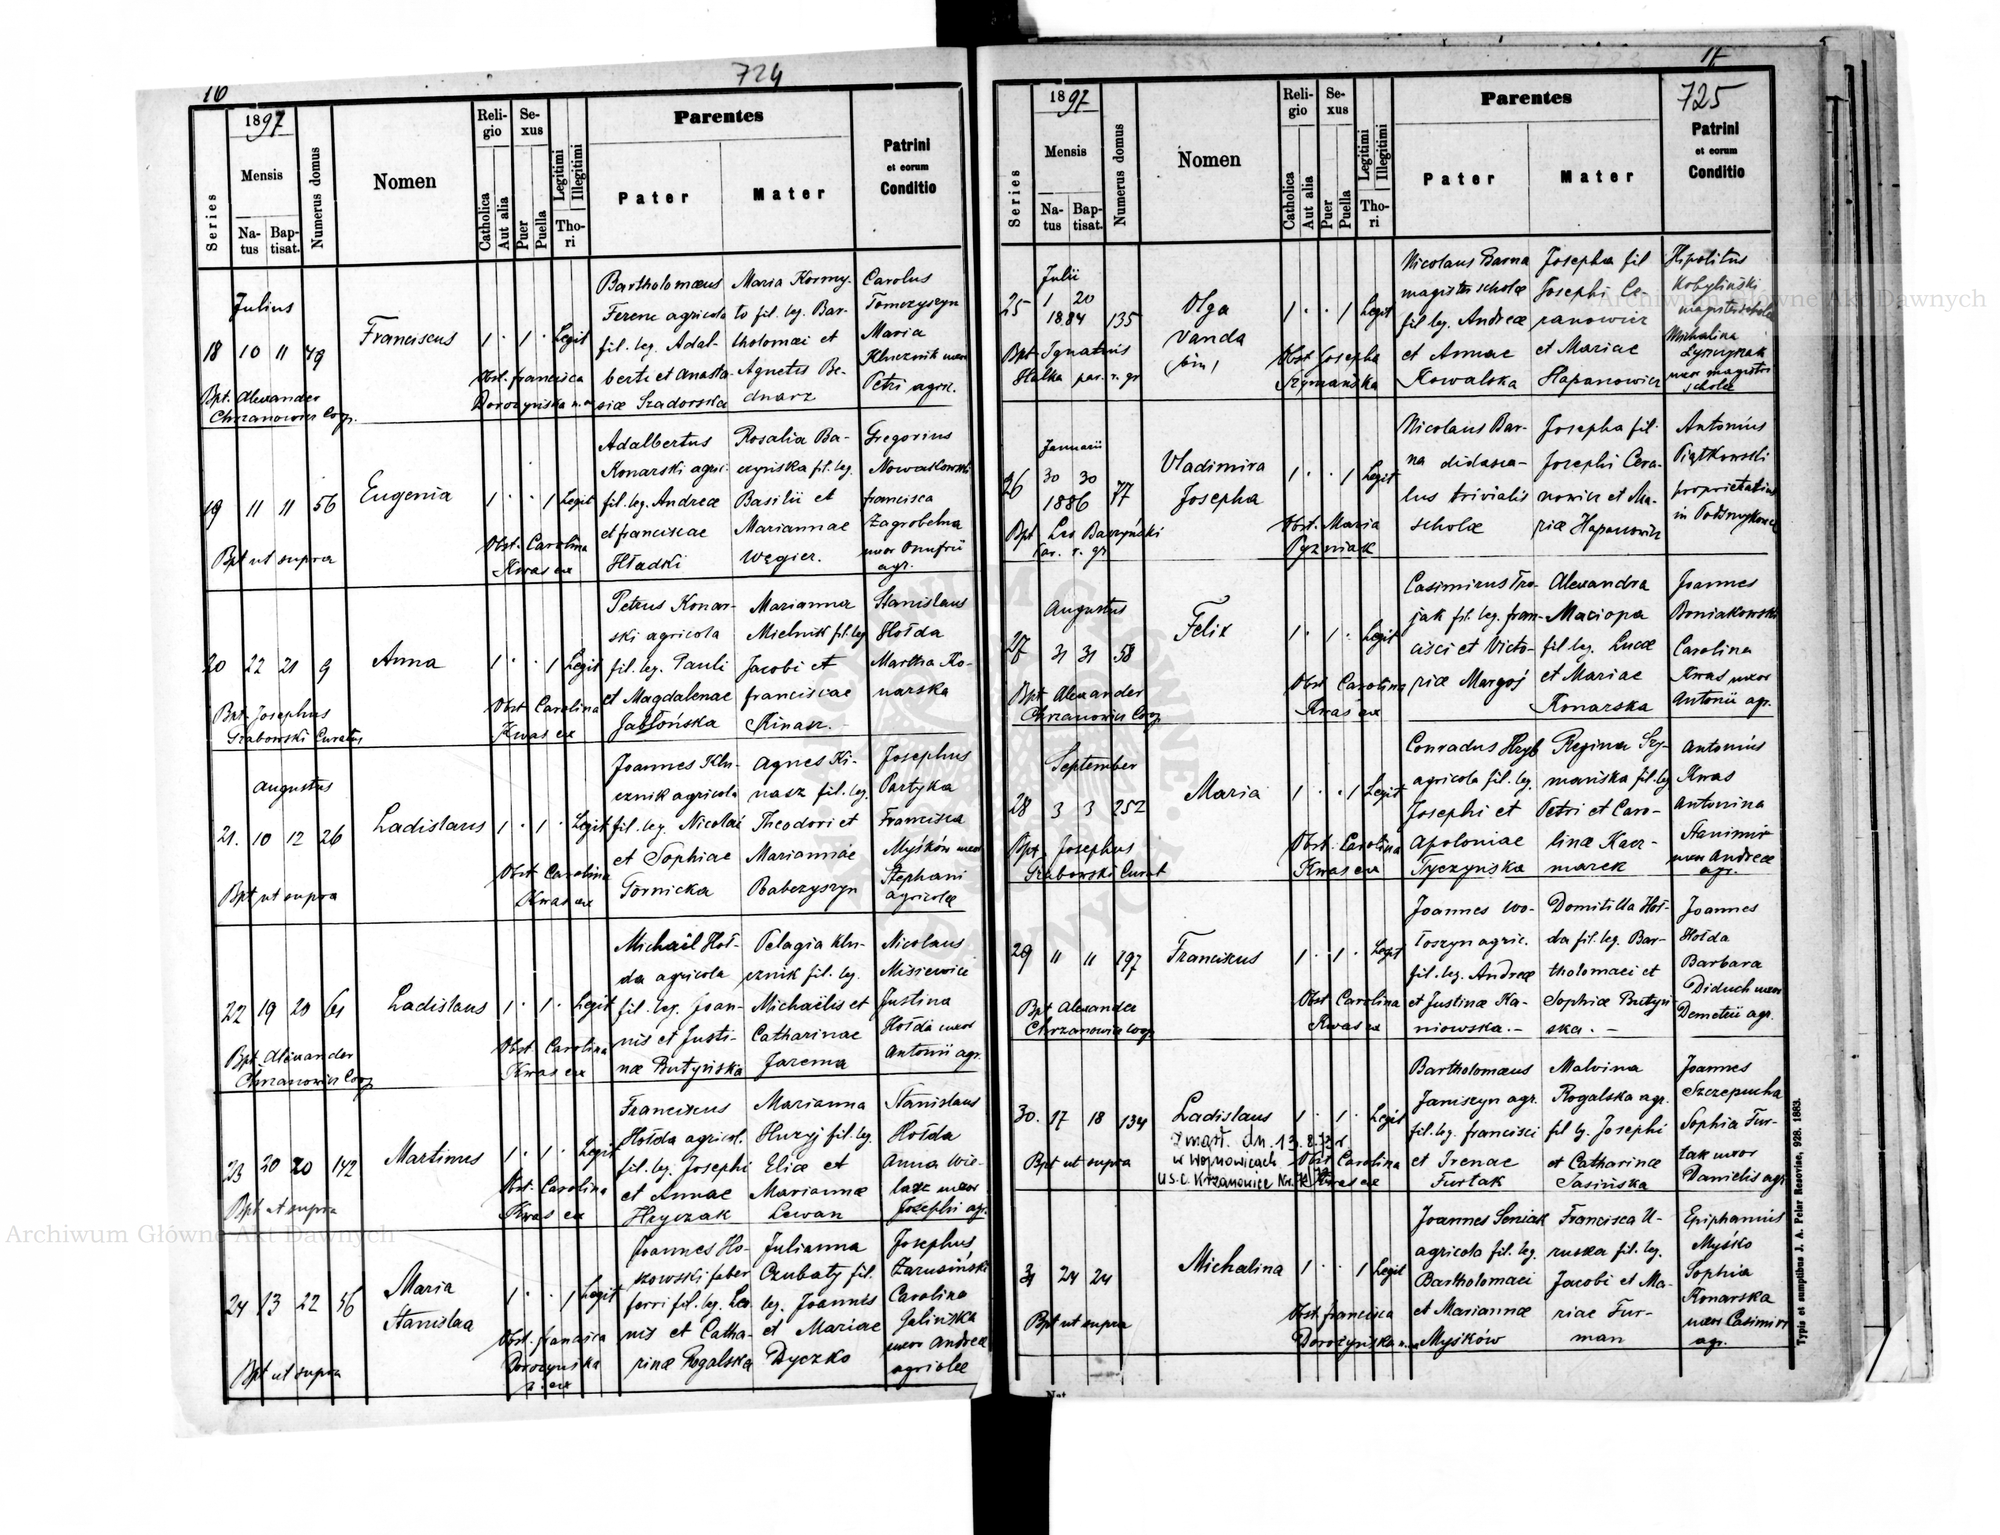 16
724
1897
Series
Mensis
Natus
Baptisat.
Numerus domus
Nomen
Religio
Catholica
Aut alia
Sexus
Puer
Puella
Legitimi
Illegitimi
Thori
Parentes
Pater
Mater
Patrini
et eorum
Conditio
Julius
18 10 11 49
Franciscus
1 · 1 · Legit
Bartholomæus
Ferenc agricola
fil. leg. Adal-
berti et Anasta-
siæ Szadorska
Maria Kormy-
to fil. leg. Bar-
tholomæi et
Agnetis Be-
dnarz
Carolus
Tomczyszyn
Maria
Klucznik uxor
Petri agric.
Bpt. Alexander
Chrzanowicz Coop.
Obst. Francisca
Dorozyńska n. ex
19 11 11 56
Eugenia
1 · · 1 Legit
Adalbertus
Konarski agric.
fil. leg. Andreæ
et Franciscae
Hładki
Rosalia Ba-
czyńska fil. leg.
Basilii et
Mariannae
Węgier.
Gregorius
Nowakowski
Francisca
Zagrobelna
uxor Onufrii
agr.
Bpt ut supra
Obst. Carolina
Kwas ex
20 22 21 9
Anna
1 · · 1 Legit
Petrus Konar-
ski agricola
fil. leg. Pauli
et Magdalenae
Jabłońska
Marianna
Mielnik fil. leg
Jacobi et
Franciscae
Kinasz. -
Stanislaus
Hołda
Martha Ko-
narska
Bpt. Josephus
Grabowski Curatus
Obst Carolina
Kwas ex
Augustus
21. 10 12 26
Ladislaus
1 · 1 · Legit
Joannes Klu-
cznik agricola
fil. leg. Nicolai
et Sophiae
Gornicka
Agnes Ki-
nasz fil. leg.
Theodori et
Mariannae
Babczyszyn
Josephus
Partyka
Francisca
Myśków uxor
Stephani
agricolæ
Bpt ut supra
Obst Carolina
Kwas ex
22 19 20 61
Ladislaus
1 · 1 · Legit
Michaël Hoł-
da agricola
fil. leg. Joan-
nis et Justi-
næ Butyńska
Pelagia Klu-
cznik fil. leg.
Michaëlis et
Catharinae
Jarema
Nicolaus
Misiewicz
Justina
Hołda uxor
Antonii agr.
Bpt. Alexander
Chrzanowicz Coop
Obst. Carolina
Kwas ex
23 20 20 142
Martinus
1 · 1 · Legit
Franciscus
Hołda agricol.
fil. leg. Josephi
et Annae
Hryczak
Marianna
Huzij fil. leg.
Eliæ et
Mariannæ
Lewan
Stanislaus
Hołda
Anna Wie-
lasz uxor
Josephi agr.
Bpt ut supra
Obst. Carolina
Kwas ex
24 13 22 56
Maria
Stanislaa
1 · · 1 Legit
Joannes Ho-
szowski faber
ferri fil. leg. Leo-
nis et Catha-
rinæ Rogalska
Julianna
Czubaty fil.
leg. Joannis
et Mariæ
Dyczko
Josephus
Zarusiński
Carolina
Galińska
uxor Andreæ
agricolæ
Bpt ut supra
Obst. Francisca
Dorozyńska
n. ex
17
725
1897
Series
Mensis
Natus
Baptisat.
Numerus domus
Nomen
Religio
Catholica
Aut alia
Sexus
Puer
Puella
Legitimi
Illegitimi
Thori
Parentes
Pater
Mater
Patrini
et eorum
Conditio
Julii
25 1 20
1884 135
Olga
Vanda
(bin)
1 · · 1 Legit
Nicolaus Barna
magister scholæ
fil. leg. Andreæ
et Annae
Kowalska
Josepha fil
Josephi Ce-
ranowicz
et Mariae
Hapanowicz
Hipolitus
Kobyliński
magister scholæ
Michalina
Łyszczyszak
uxor magistri
scholæ
Bpt Ignatius
Hałka par. r. gr
Obst Josepha
Szymańska
Januarii
26 30 30
1886 77
Vladimira
Josepha
1 · · 1 Legit
Nicolaus Bar-
na didasca-
lus trivialis
scholæ
Josepha fil.
Josephi Cera-
nowicz et Ma-
riæ Hapanowicz
Antonius
Piątkowski
proprietarius
Bpt Leo Baczyński
Par. r. gr
Obst. Maria
Pyzniak
Augustus
27 31 31 58
Felix
1 · 1 · Legit
Casimirus Tro-
jak fil. leg. Fran-
cisci et Victo-
riæ Margoś
Alexandra
Maciopa
fil. leg. Lucæ
et Mariae
Konarska
Joannes
Boniakowski
Carolina
Kwas uxor
Antonii agr.
Bpt. Alexander
Chrzanowicz Coop
Obst Carolina
Kwas ex
September
28 3 3 252
Maria
1 · · 1 Legit
Conradus Hryb
agricola fil. leg.
Josephi et
Apoloniae
Tyczyńska
Regina Szy-
mańska fil. leg
Petri et Caro-
linæ Kacz-
marek
Antonius
Kwas
Antonina
Stanimir
uxor Andreæ
agr.
Bpt. Josephus
Grabowski Curat
Obst. Carolina
Kwas ex
29 11 11 197
Franciscus
1 · 1 · Legit
Joannes Wo-
łoszyn agric.
fil. leg. Andreæ
et Justinæ Ka-
niowska. -
Domitilla Hoł-
da fil. leg. Bar-
tholomaei et
Sophiæ Butyń-
ska. -
Joannes
Hołda
Barbara
Diduch uxor
Demetrii agr.
Bpt Alexander
Chrzanowicz Coop
Obst Carolina
Kwas ex
30. 17 18 134
Ladislaus
1 · 1 · Legit
Zmarł. dn. 13.8.72 r
w Wojnowicach
U.S.C. Krzanowice
Bartholomæus
Janiszyn agr.
fil. leg. Francisci
et Irenae
Furtak
Malvina
Rogalska agr.
fil leg. Josephi
et Catharinæ
Sasińska
Joannes
Szczepucha
Sophia Fur-
tak uxor
Danielis agr
Bpt ut supra
Obst Carolina
Kwas ex
31 24 24
Michalina
1 · · 1 Legit
Joannes Seniak
agricola fil. leg.
Bartholomaei
et Mariannæ
Myśków
Francisca U-
ruska fil. leg.
Jacobi et Ma-
riae Fur-
man
Epiphanius
Myśko
Sophia
Konarska
uxor Casimiri
agr.
Bpt ut supra
Obst. Francisca
Dorozyńska
Typis et sumptibus J. A. Pelar Resoviae, 928. 1883.
Nat
Archiwum Główne Akt Dawnych
Archiwum Główne Akt Dawnych